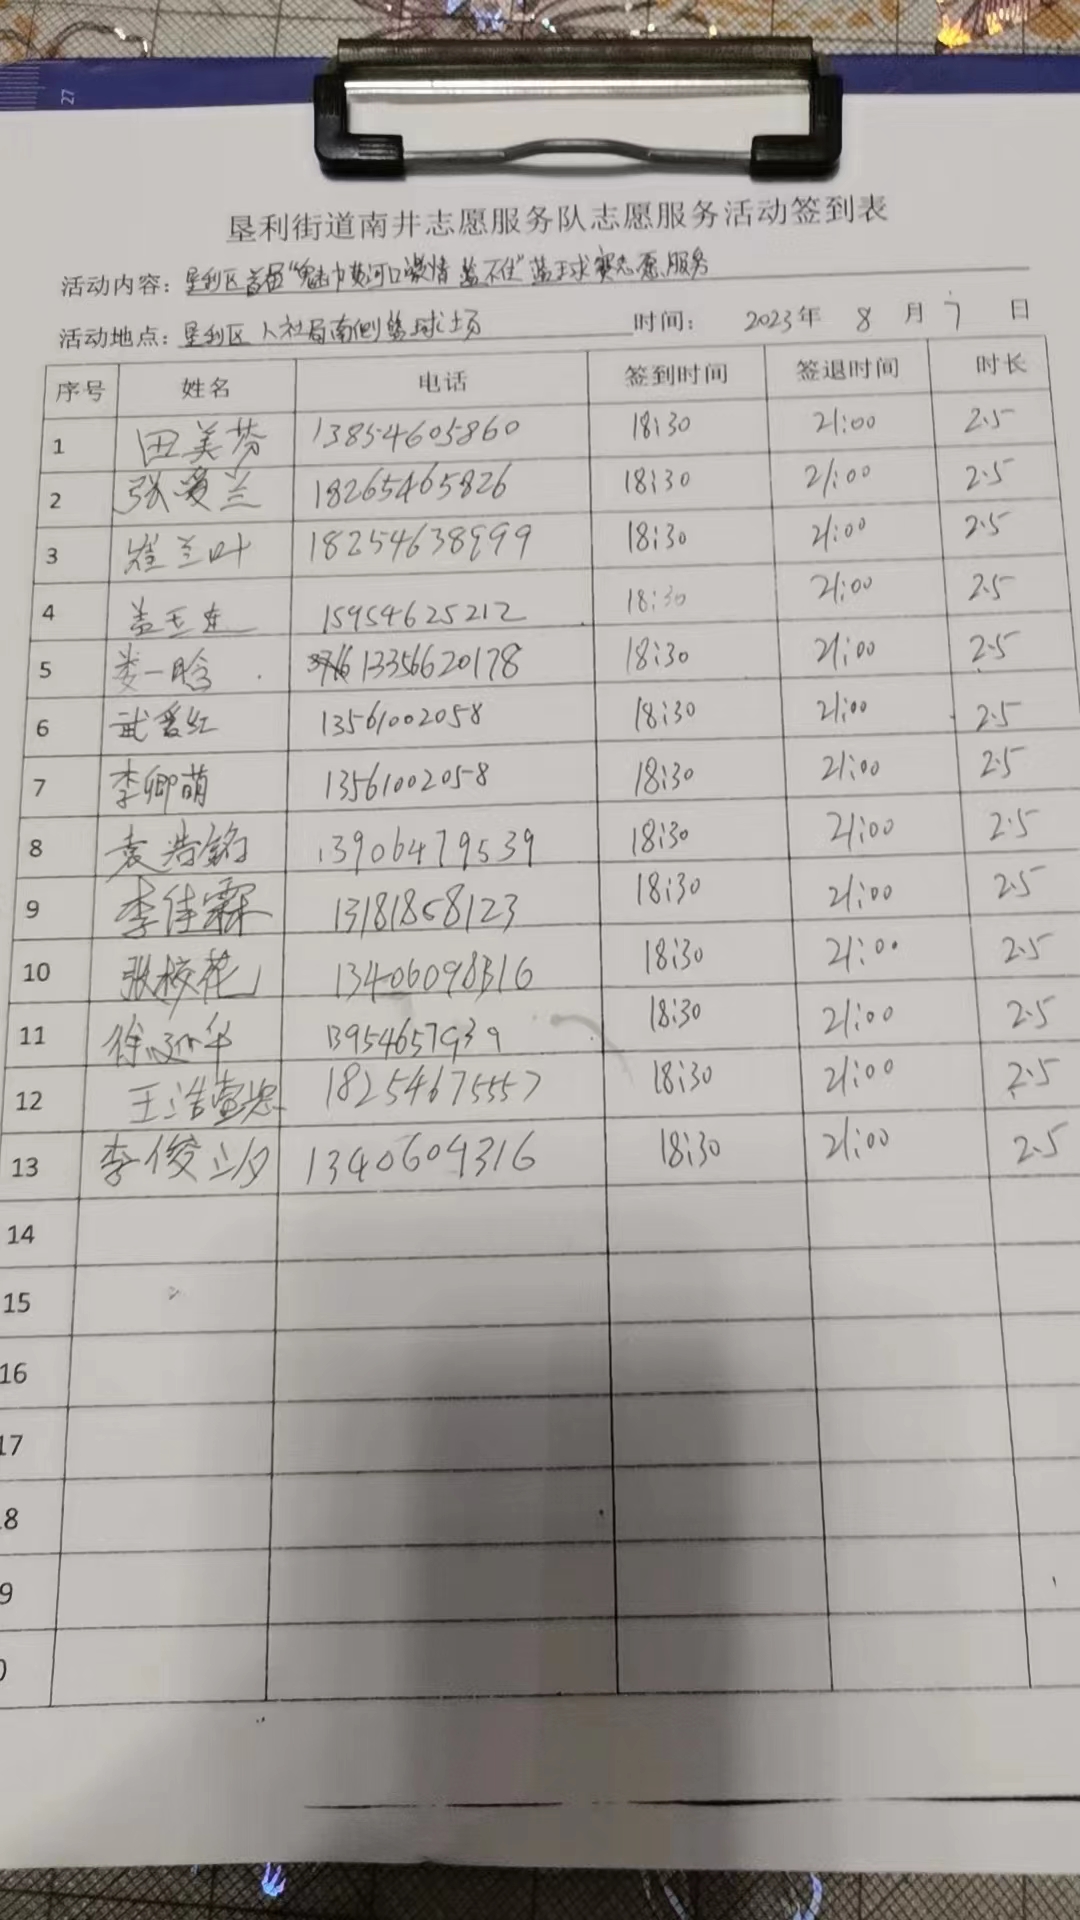 27
垦利街道南井志愿服务队志愿服务活动签到表
活动内容：垦利区首届“魅力黄河口激情篮不住”篮球赛志愿服务
活动地点：垦利区人社局南侧篮球场 时间： 2023年 8 月 7 日
序号 姓名 电话 签到时间 签退时间 时长
1 田美芬 13854605860 18:30 21:00 2.5
2 张爱兰 18265465826 18:30 21:00 2.5
3 崔兰叶 18254638999 18:30 21:00 2.5
4 盖玉连 15954625212 18:30 21:00 2.5
5 娄一晗 13356620178 18:30 21:00 2.5
6 武爱红 13561002058 18:30 21:00 2.5
7 李卿萌 13561002058 18:30 21:00 2.5
8 袁浩铭 13906479539 18:30 21:00 2.5
9 李佳霖 13181868123 18:30 21:00 2.5
10 张校花 18:30 21:00 2.5
11 徐 华 13954657939 18:30 21:00 2.5
12 王浩 18254675557 18:30 21:00 2.5
13 李俊 1340609316 18:30 21:00 2.5
14
15
16
17
8
9
0